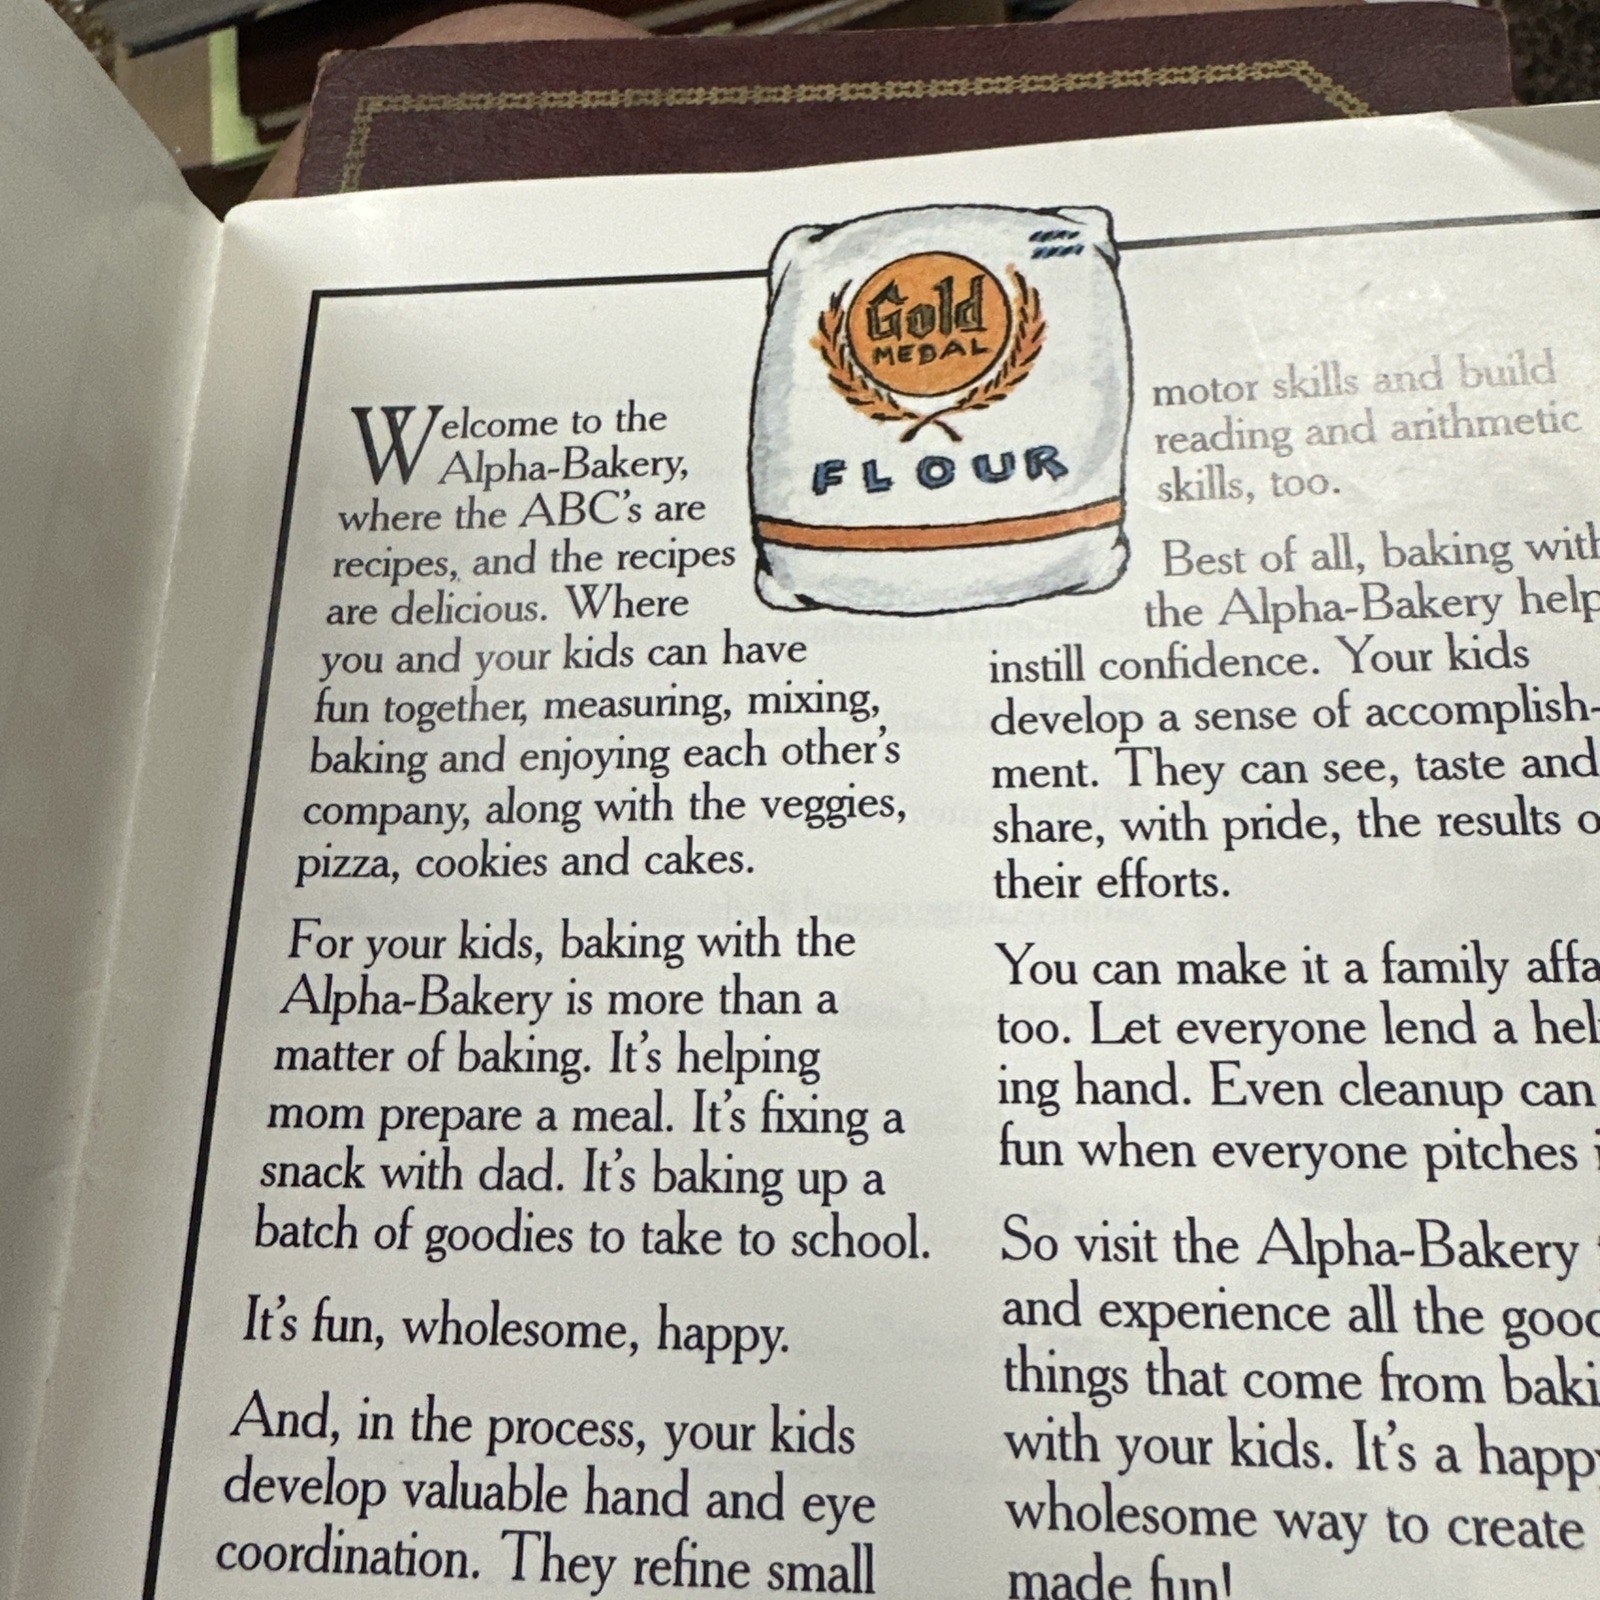 Gold
MEDAL
FLOUR
Welcome to the
Alpha-Bakery,
where the ABC's are
recipes, and the recipes
are delicious. Where
you and your kids can have
fun together, measuring, mixing,
baking and enjoying each other's
company, along with the veggies,
pizza, cookies and cakes.
For your kids, baking with the
Alpha-Bakery is more than a
matter of baking. It's helping
mom prepare a meal. It's fixing a
snack with dad. It's baking up a
batch of goodies to take to school.
It's fun, wholesome, happy.
And, in the process, your kids
develop valuable hand and eye
coordination. They refine small
motor skills and build
reading and arithmetic
skills, too.
Best of all, baking with
the Alpha-Bakery help
instill confidence. Your kids
develop a sense of accomplish-
ment. They can see, taste and
share, with pride, the results o
their efforts.
You can make it a family affa
too. Let everyone lend a hel
ing hand. Even cleanup can
fun when everyone pitches i
So visit the Alpha-Bakery
and experience all the good
things that come from baki
with your kids. It's a happy
wholesome way to create
made fun!